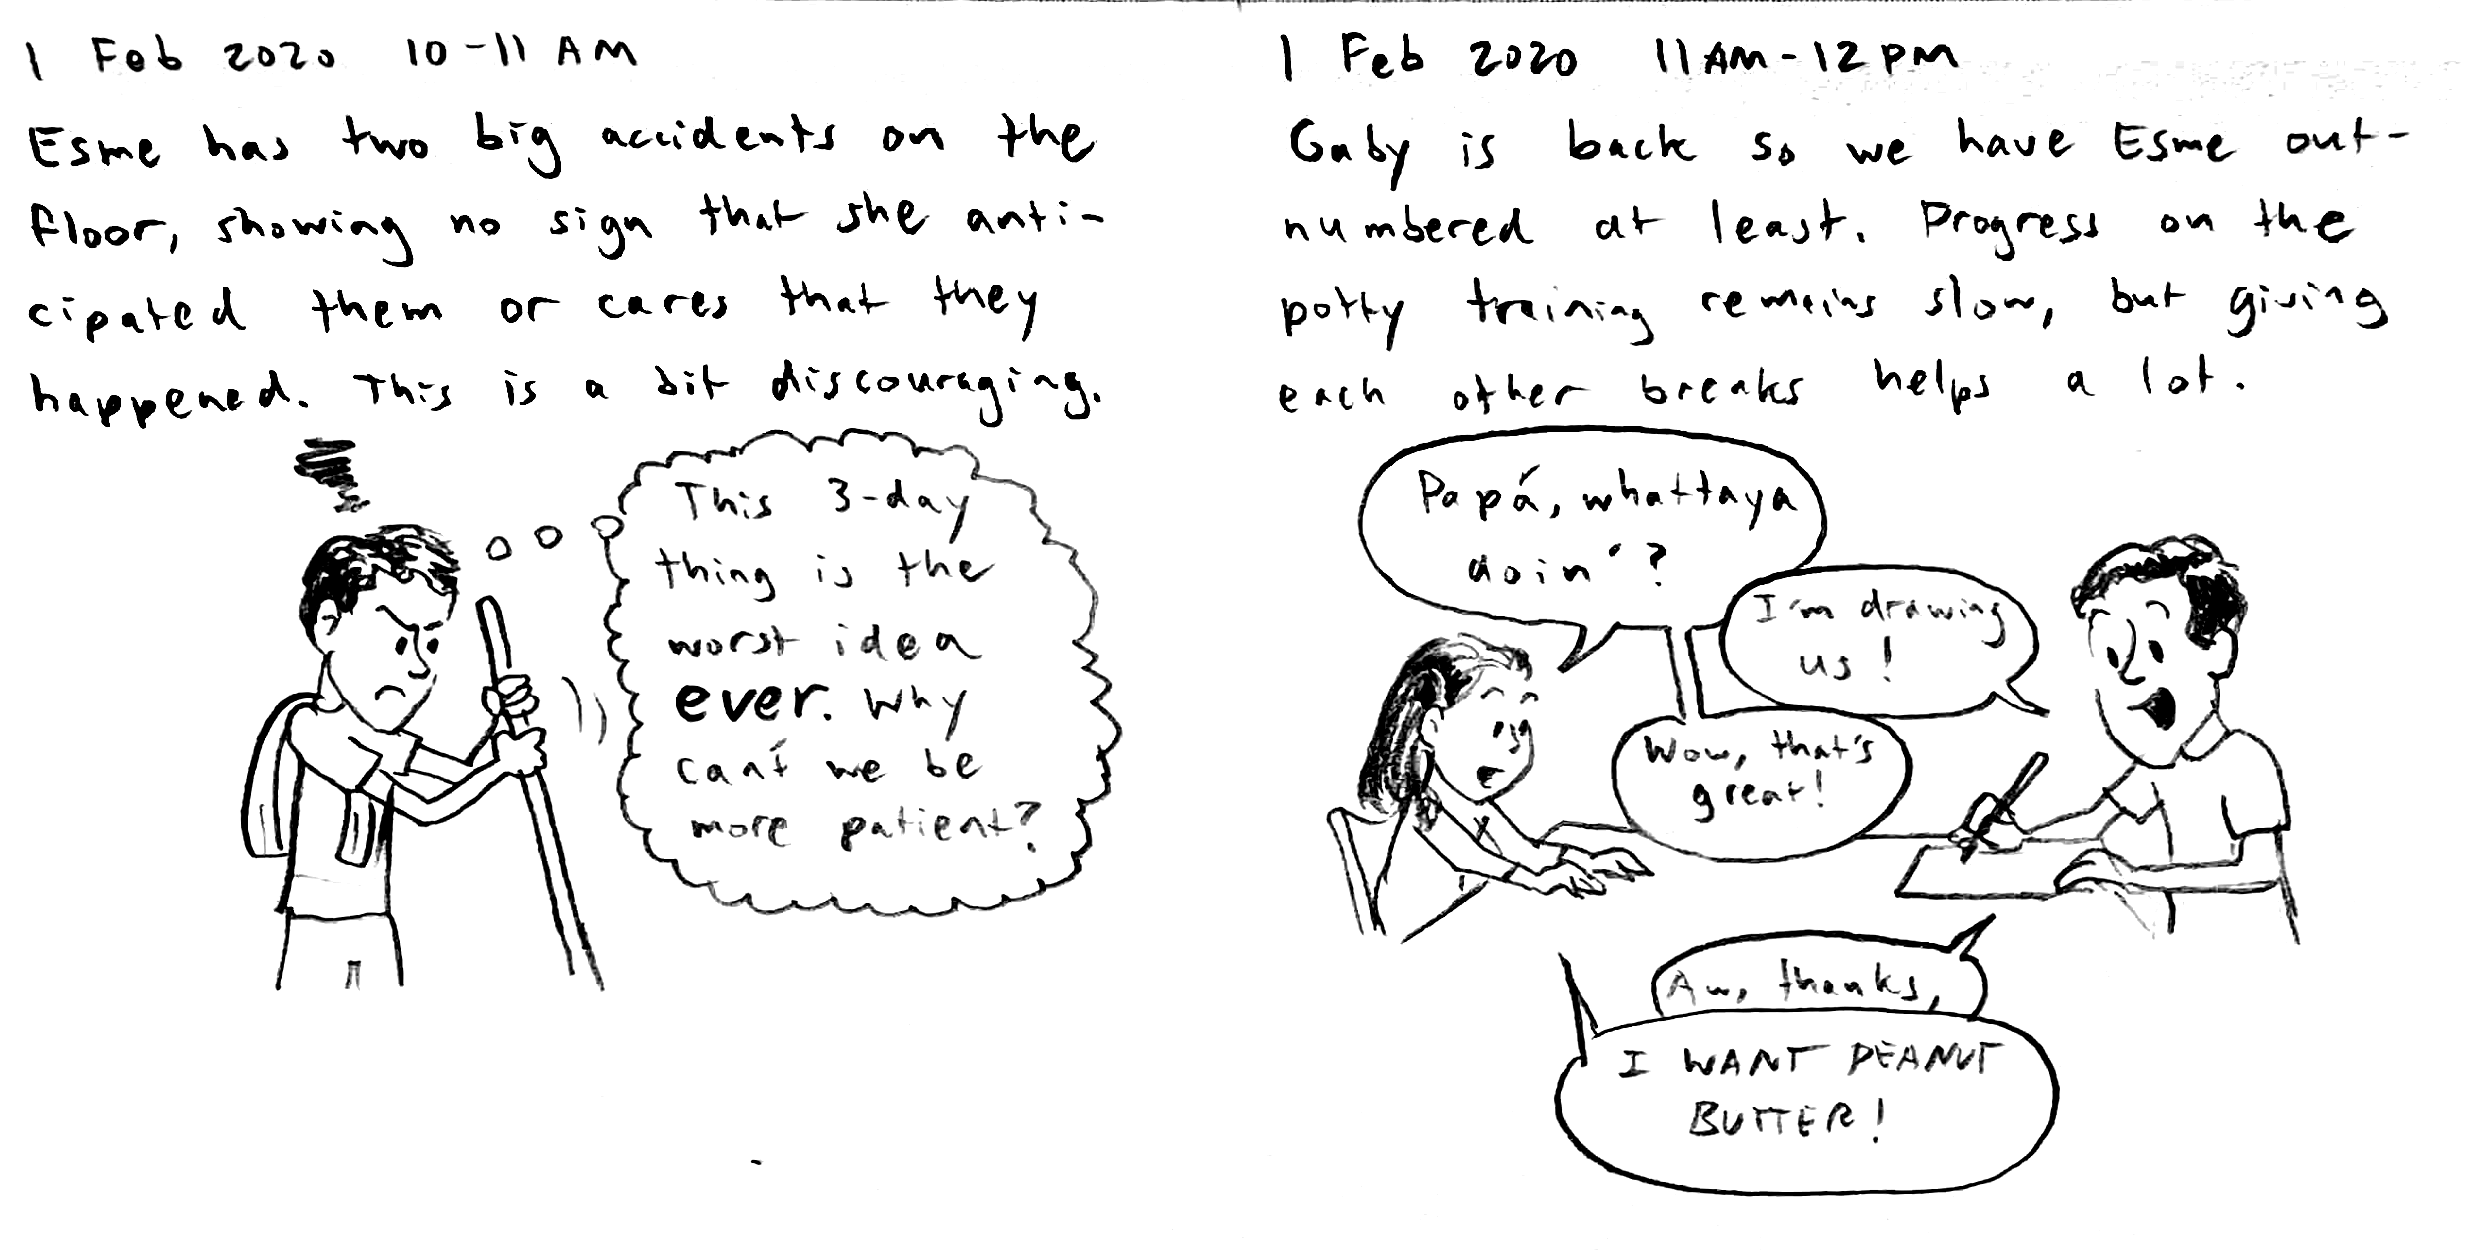 1 Feb 2020 10-11 AM
Esme has two big accidents on the
floor, showing no sign that she anti-
cipated them or cares that they
happened. This is a bit discouraging.
This 3-day
thing is the
worst idea
ever. Why
can't we be
more patient?
1 Feb 2020 11AM-12PM
Gaby is back so we have Esme out-
numbered at least. Progress on the
potty training remains slow, but giving
each other breaks helps a lot.
Papá, whattaya
doin'?
I'm drawing
us!
Wow, that's
great!
Aw, thanks,
I WANT PEANUT
BUTTER!